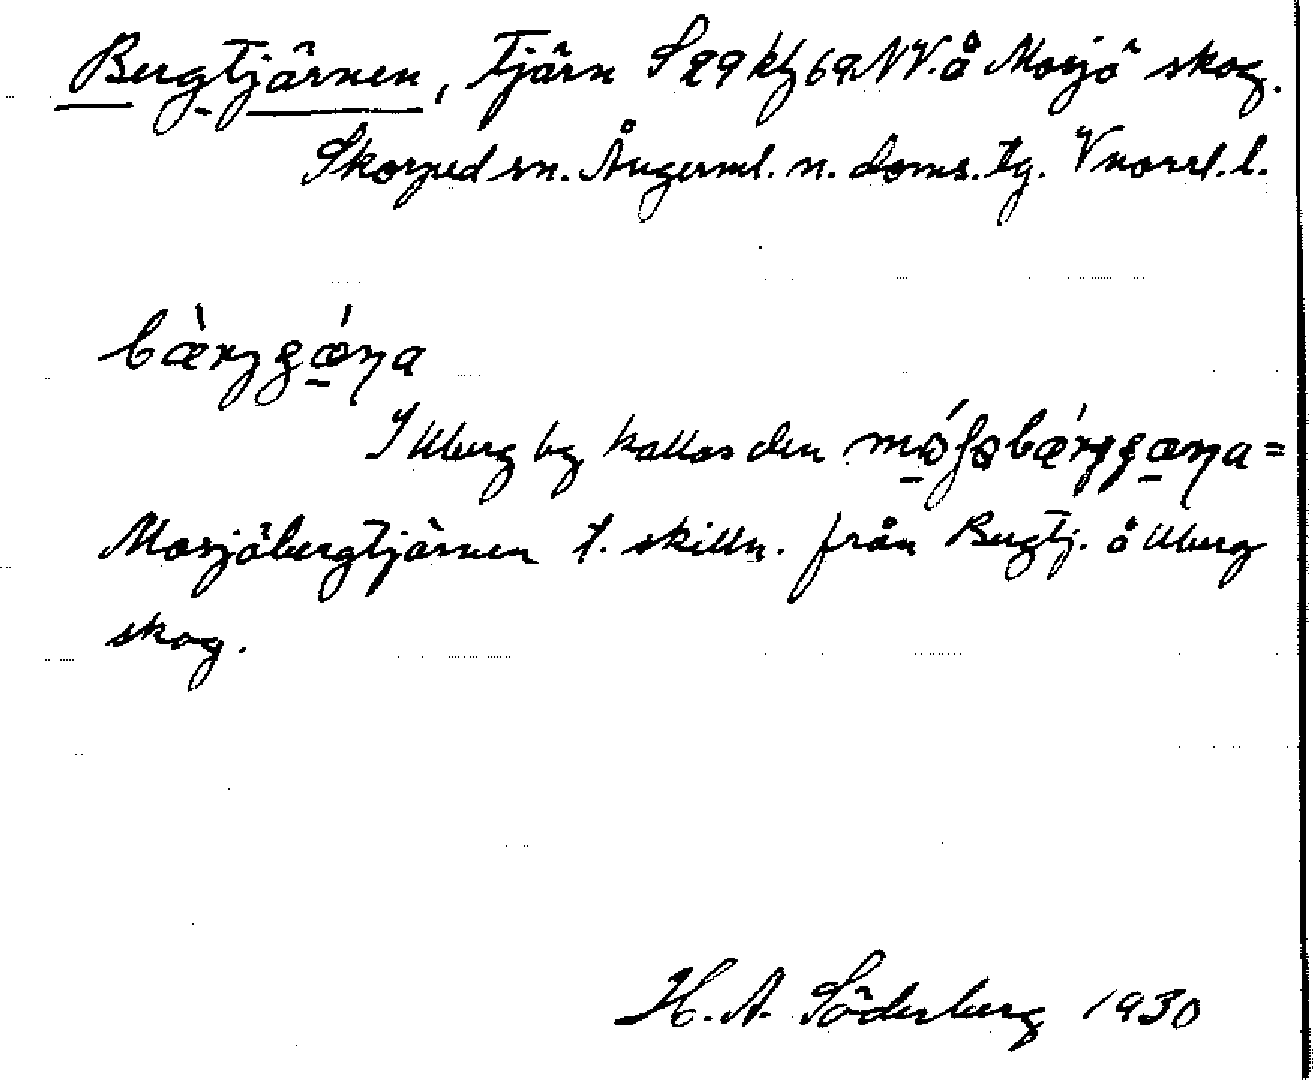 Bergtjärnen, Tjärn S 29 kf 69 NV. å Mosjö skog.
Skorped sn. Ångerml. n. doms. tg. Vnorrl. l.
bæ̀rʒgǽna
I Uberg by kallas den mósobǽrggæna =
Mosjöbergtjärnen t. skilln. från Bergtj. å Uberg
skog.
H. A. Söderberg 1930